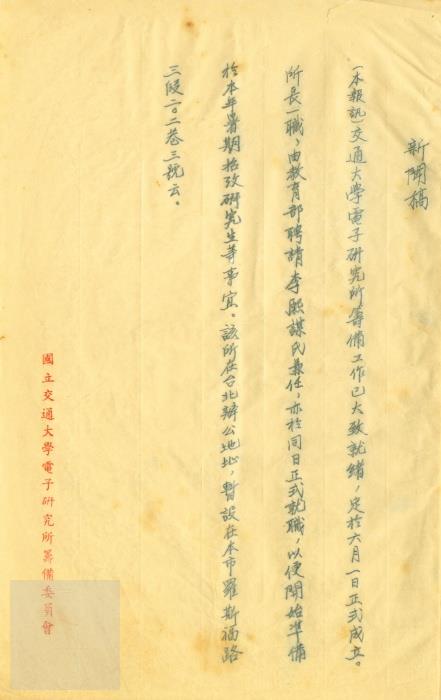 新聞稿
(本報訊)交通大學電子研究所籌備工作已大致就緒,定於六月一日正式成立。
所長一職,由教育部聘請李熙謀氏兼任,亦於同日正式就職,以便開始準備
於本年暑期招攷研究生等事宜。該所在台北辦公地址,暫設在本市羅斯福路
三段二〇二巷三號云。
國立交通大學電子研究所籌備委員會